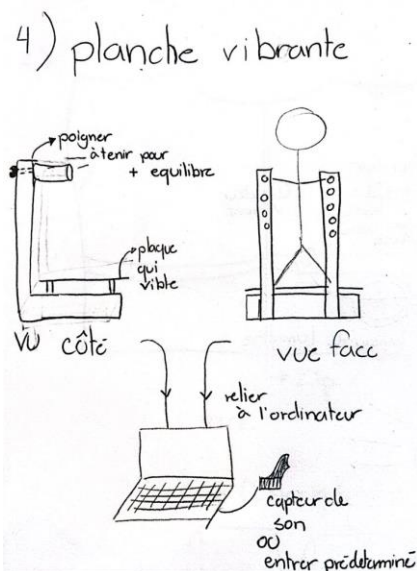 4) planche vibrante
poigner
à tenir pour
+ equilibre
plaque
qui
vibre
VU côté
vue face
relier
à l'ordinateur
capteur de
son
OU
entrer prédeterminé